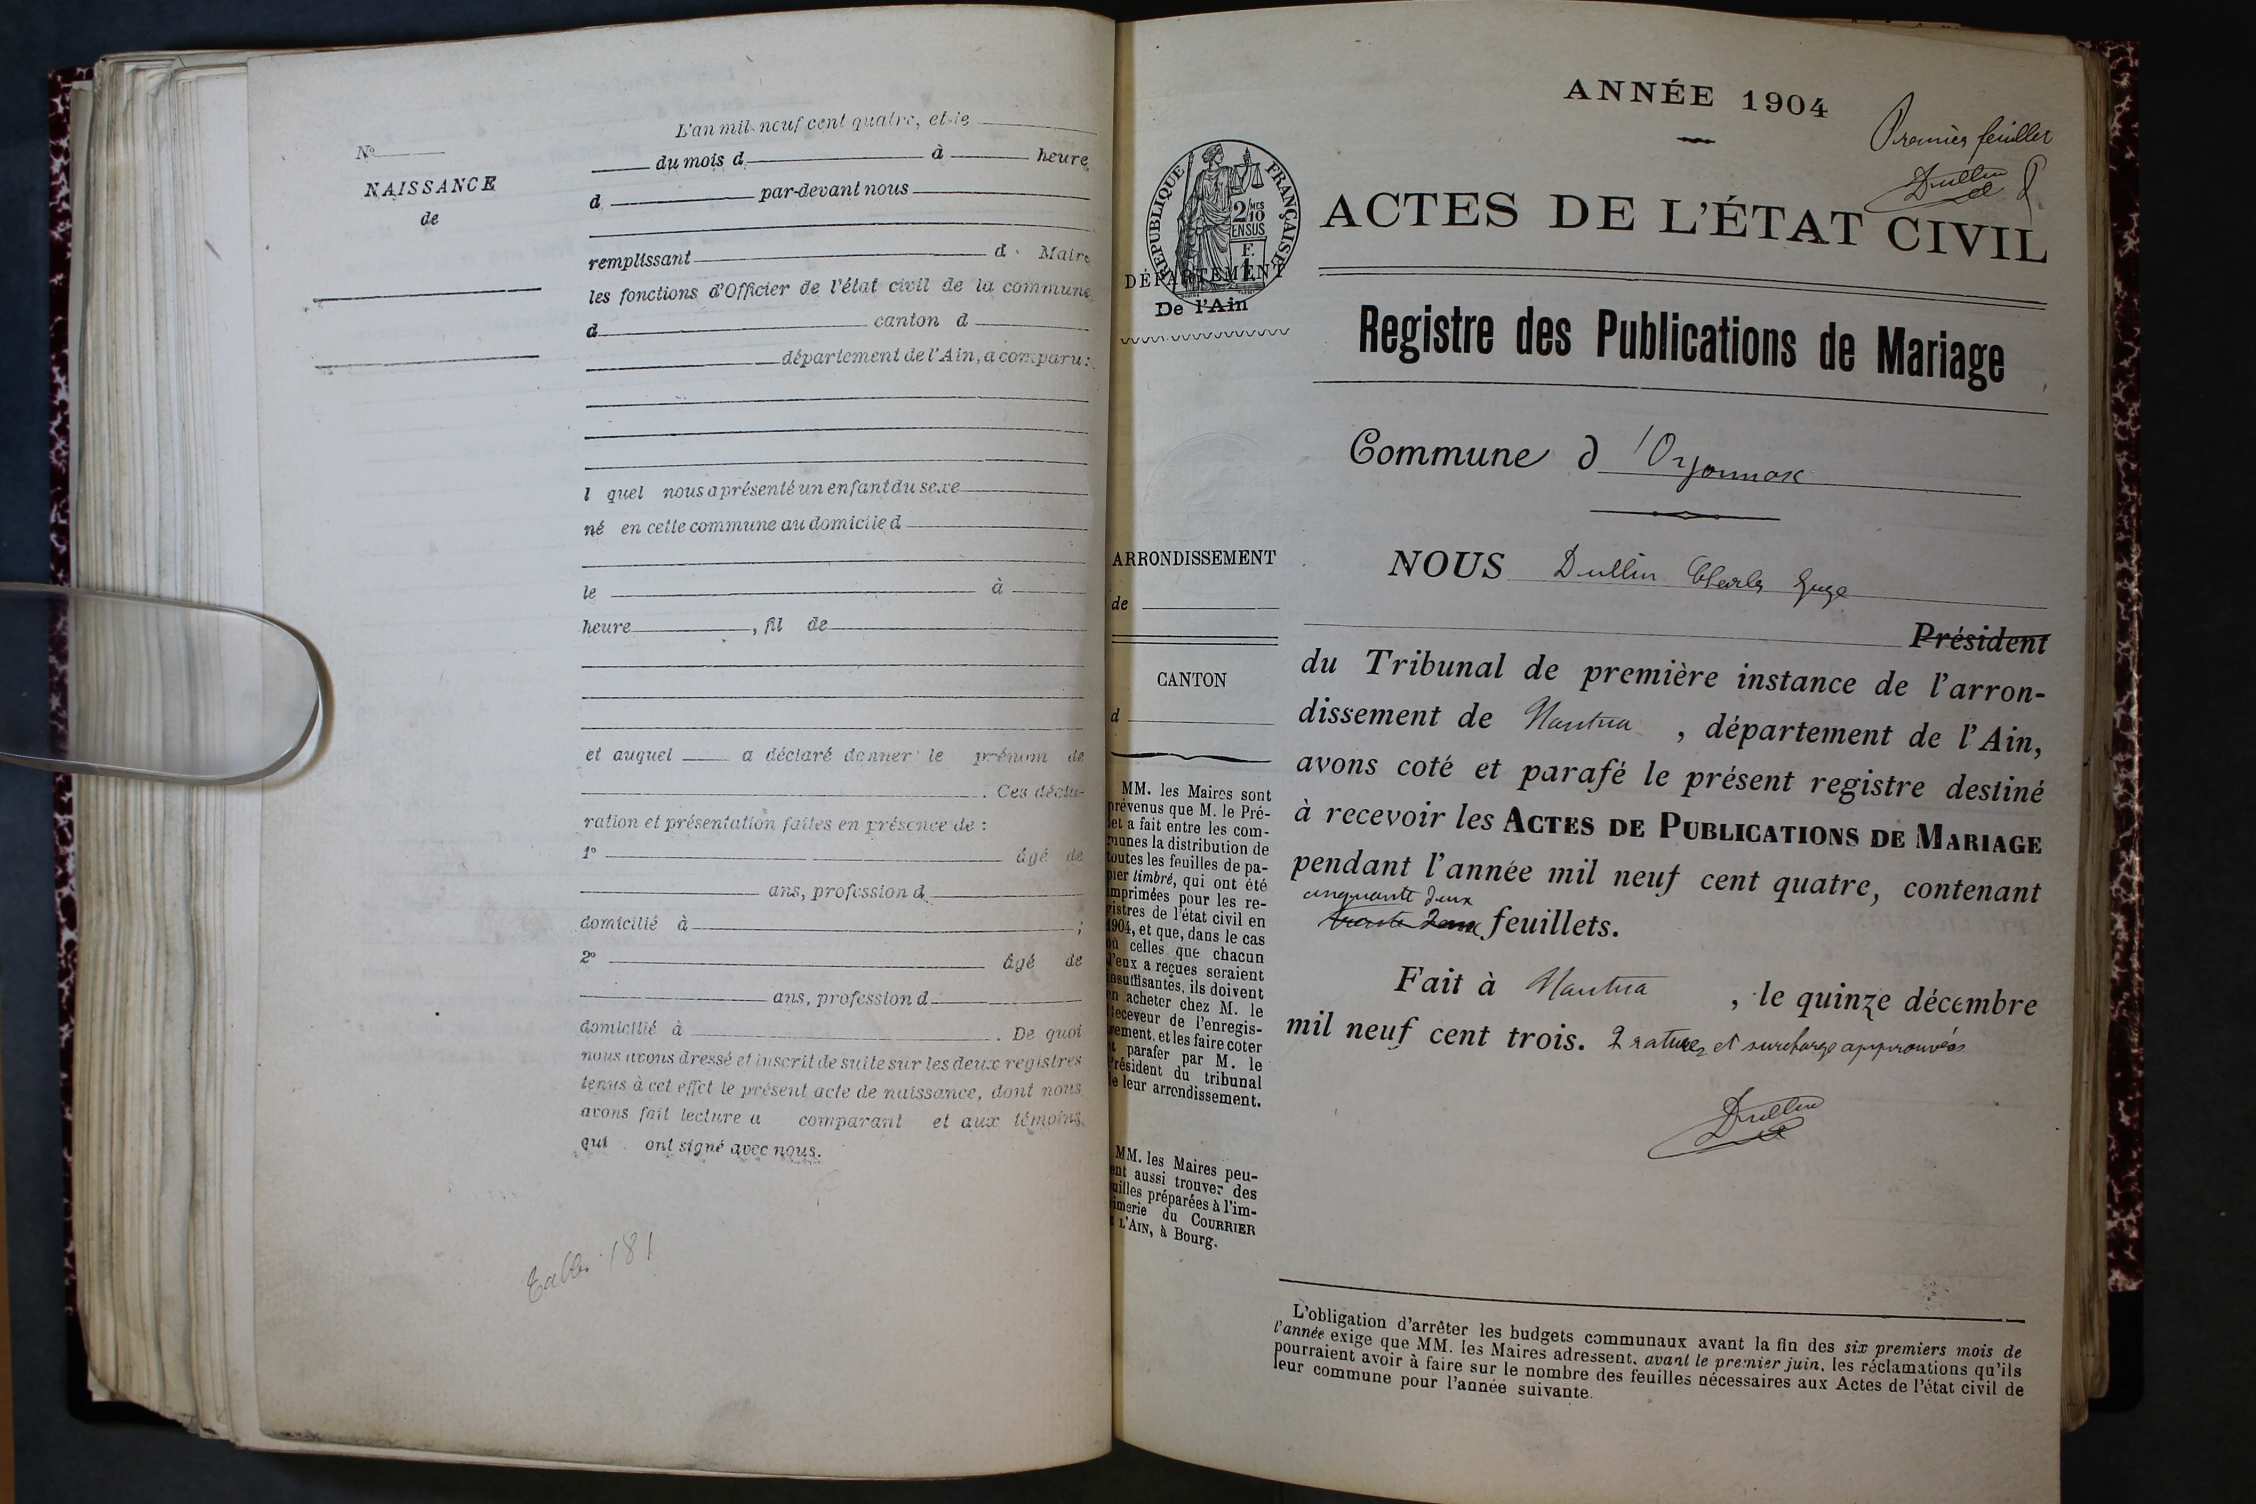 N°
NAISSANCE
de
L'an mil neuf cent quatre, et le
du mois d à heure
d par-devant nous
remplissant d Maire
les fonctions d'Officier de l'état civil de la commune
d canton d
département de l'Ain, a comparu :
l quel nous a présenté un enfant du sexe
né en cette commune au domicile d
le à
heure , fil de
et auquel a déclaré donner le prénom de
. Ces décla-
ration et présentation faites en présence de :
1° âgé de
ans, profession d
domicilié à ;
2° âgé de
ans, profession d
domicilié à . De quoi
nous avons dressé et inscrit de suite sur les deux registres
tenus à cet effet le présent acte de naissance, dont nous
avons fait lecture a comparant et aux témoins
qui ont signé avec nous.
181
ANNÉE 1904
Premier feuillet
Dullin
RÉPUBLIQUE FRANÇAISE
2/10 MES
EN SUS
F.
1
DÉPARTEMENT
De l'Ain
ACTES DE L'ÉTAT CIVIL
Registre des Publications de Mariage
Commune d'Oyonnax
ARRONDISSEMENT
de
CANTON
d
MM. les Maires sont
prévenus que M. le Pré-
fet a fait entre les com-
munes la distribution de
toutes les feuilles de pa-
pier timbré, qui ont été
imprimées pour les re-
gistres de l'état civil en
1904, et que, dans le cas
où celles que chacun
d'eux a reçues seraient
insuffisantes, ils doivent
en acheter chez M. le
Receveur de l'enregis-
trement, et les faire coter
et parafer par M. le
Président du tribunal
de leur arrondissement.
MM. les Maires peu-
vent aussi trouver des
feuilles préparées à l'im-
primerie du COURRIER
DE L'AIN, à Bourg.
NOUS Dullin Charles
Président
du Tribunal de première instance de l'arron-
dissement de Nantua , département de l'Ain,
avons coté et parafé le présent registre destiné
à recevoir les ACTES DE PUBLICATIONS DE MARIAGE
pendant l'année mil neuf cent quatre, contenant
cinquante deux
trente deux feuillets.
Fait à Nantua , le quinze décembre
mil neuf cent trois. 2 ratures et surcharge approuvées
Dullin
L'obligation d'arrêter les budgets communaux avant la fin des six premiers mois de
l'année exige que MM. les Maires adressent, avant le premier juin, les réclamations qu'ils
pourraient avoir à faire sur le nombre des feuilles nécessaires aux Actes de l'état civil de
leur commune pour l'année suivante.